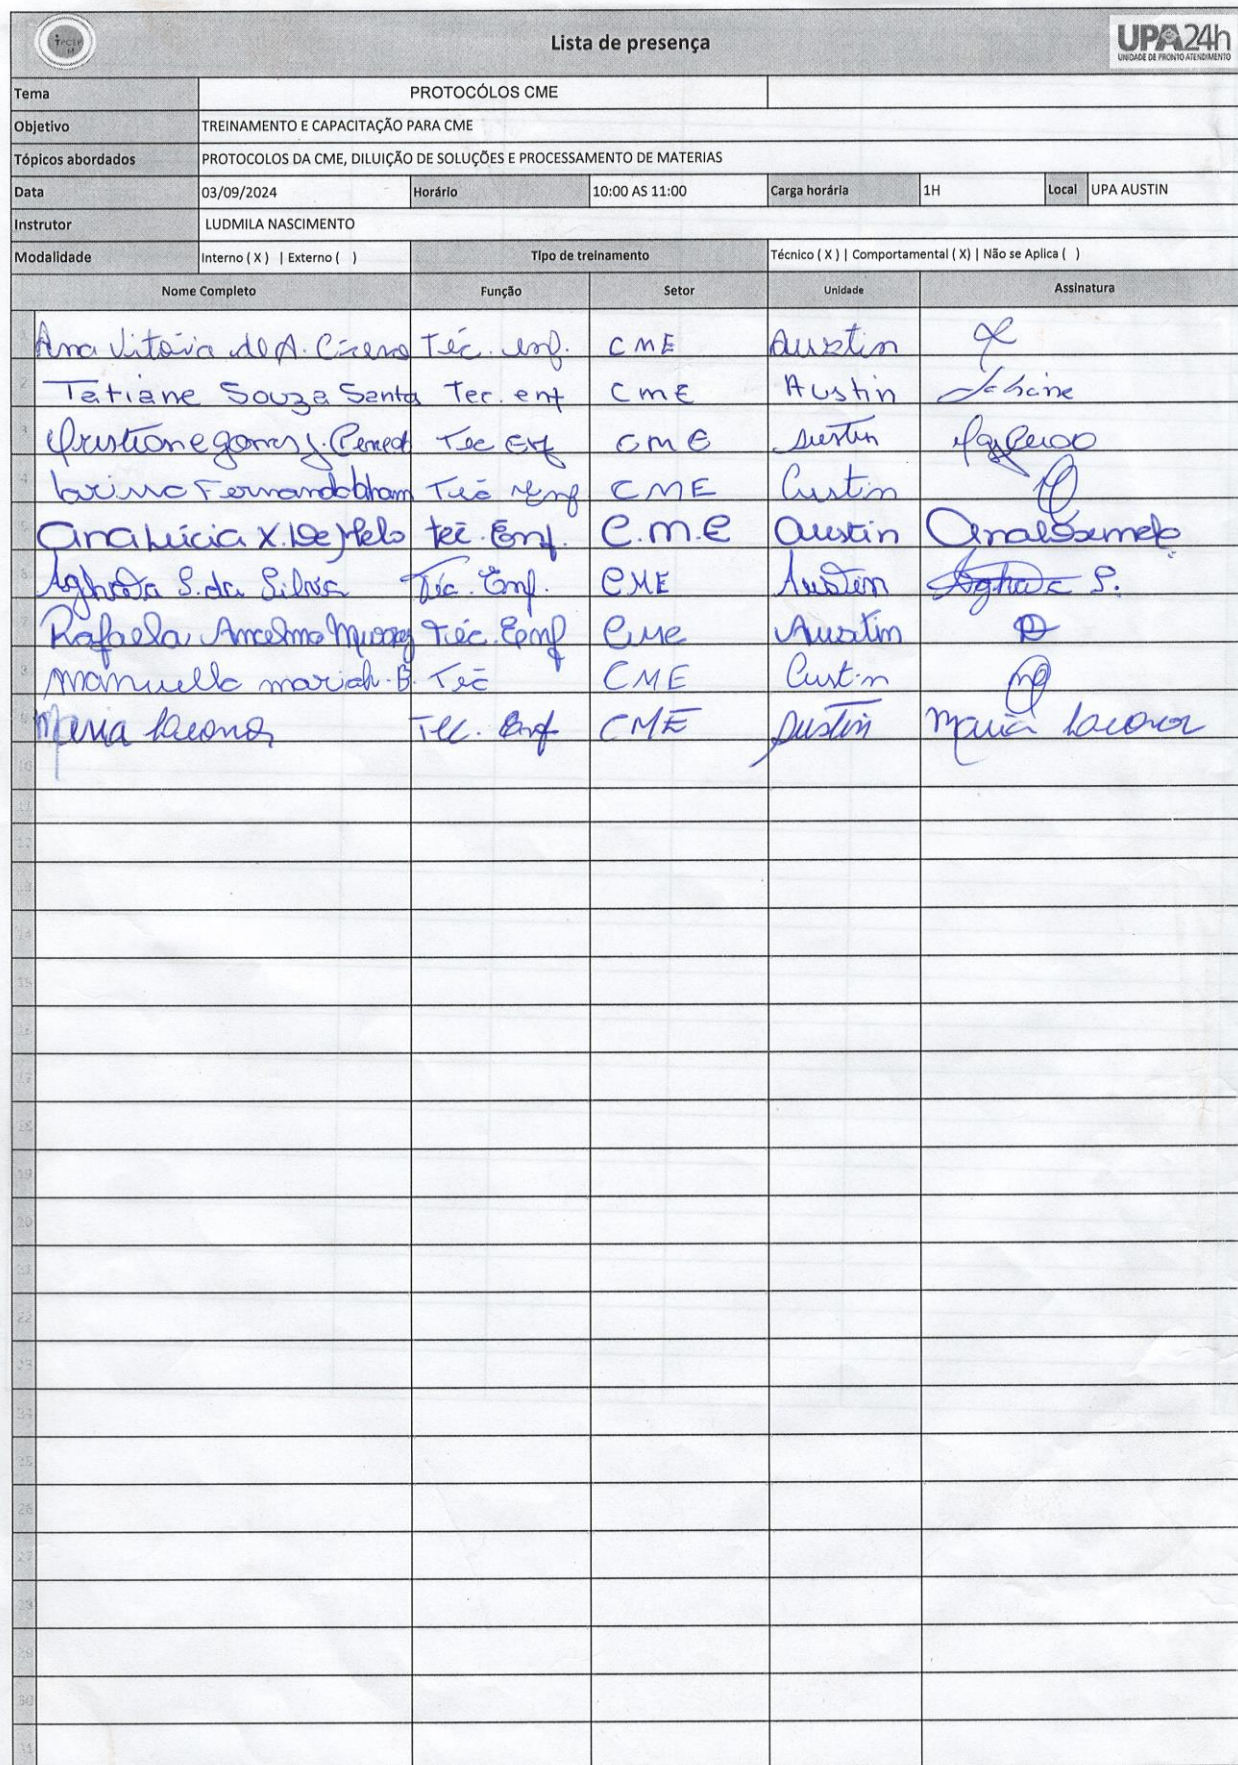 Lista de presença
UPA24h
UNIDADE DE PRONTO ATENDIMENTO
Tema PROTOCÓLOS CME
Objetivo TREINAMENTO E CAPACITAÇÃO PARA CME
Tópicos abordados PROTOCOLOS DA CME, DILUIÇÃO DE SOLUÇÕES E PROCESSAMENTO DE MATERIAS
Data 03/09/2024 Horário 10:00 AS 11:00 Carga horária 1H Local UPA AUSTIN
Instrutor LUDMILA NASCIMENTO
Modalidade Interno ( X ) | Externo ( ) Tipo de treinamento Técnico ( X ) | Comportamental ( X) | Não se Aplica ( )
Nome Completo Função Setor Unidade Assinatura
1 Ana Vitória de A. Téc. enf. CME Austin
2 Tatiane Souza Santa Tec. enf CmE Austin
3 Tec Enf CME Austin
4 Téc Enf CME Austin
5 Ana Lúcia X. De Melo Téc. Enf. C.M.E Austin
6 S. da Silva Téc. Enf. CME Austin S.
7 Rafaela Ancelmo Téc. Enf CME Austin
8 Manuella mariah. B. Téc CME Austin
9 Maria Tec. Enf CME Austin Maria
10
11
12
13
14
15
16
17
18
19
20
21
22
23
24
25
26
27
28
29
30
31